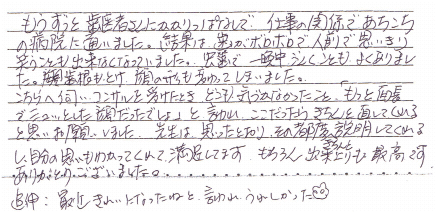 もうずっと歯医者さんにかかりっぱなしで 仕事の関係であちこち
の病院に通いました。結果は、歯がボロボロで人前で思いきり
笑うことも出来なくなっていました。一晩中うくこともよくありまし
た。歯もとけ、顔の形も変わってしまいました。
こちらへ伺いコンサルを受けたとき どこも言ってなかった「もっと面長
でニコッとした顔だったでしょ」と言われ ここだったらきちんと直してくれる
と思いお願いしました。先生は思ったとおり、その都度説明してくれる
し、自分の思いもわかってくれて満足してます。もちろん出来上りも最高です。
ありがとうございました。
追伸:最近きれいになったねと言われうれしかった